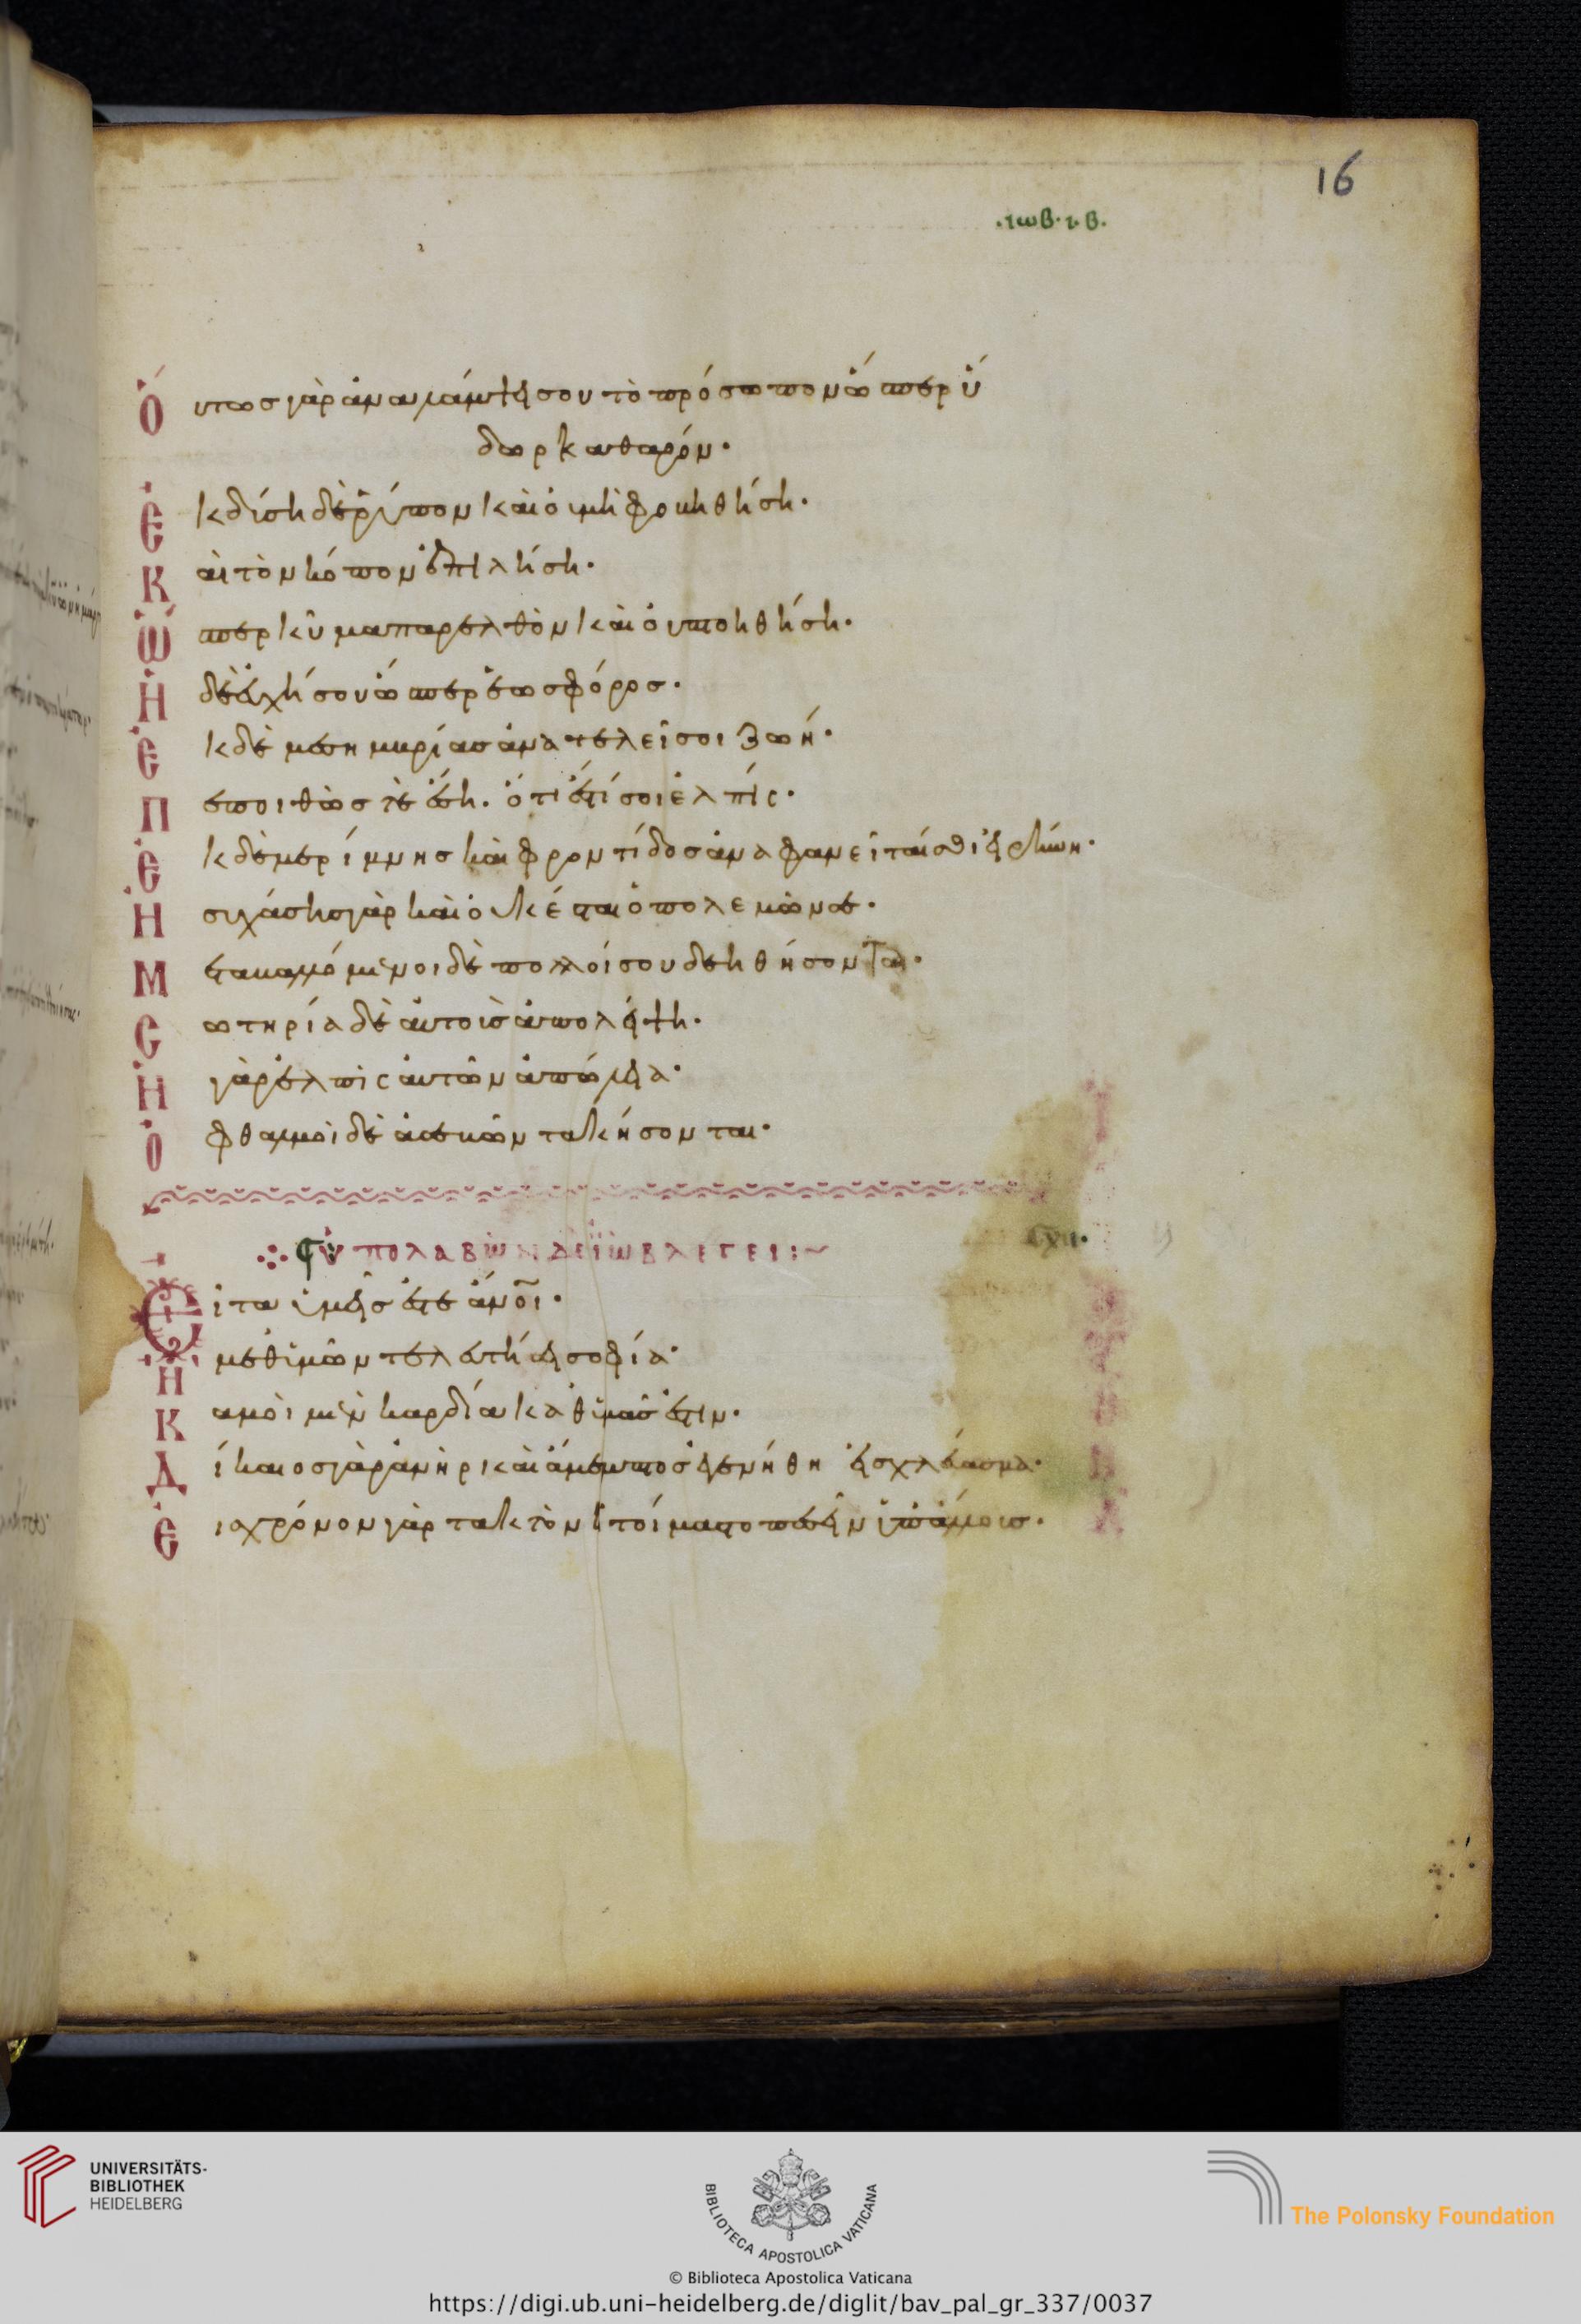 16
·ιωβ·ιβ·
Ὅυτωσ γὰρ ἀναλάμψει σου τὸ πρόσωπον ὥσπερ ὕ
δωρ καθαρόν·
ἐκδύση δὲ ῥύπον καὶ ὀυ μὴ φοβηθήση·
καὶ τὸν κόπον ἐπιλήση·
ὥσπερ κῦμα παρελθὸν καὶ ὀυ πτοηθήση·
ἡ δὲ ἐυχή σου ὥσπερ ἑωσφόροσ·
ἐκ δὲ μεσημβρίασ ἀνατελεῖ σοι ζωή·
πεποιθώσ τε ἔση· ὅτι ἔστί σοι ἐλπίς·
ἐκ δὲ μερίμνησ καὶ φροντίδοσ ἀναφανεῖταί σοι εἰρήνη·
ἡσυχάσησ γὰρ καὶ ὀυκ ἔσται ὁ πολεμῶν σε·
μεταβαλλόμενοι δὲ πολλοί σου δεηθήσονται·
σωτηρία δὲ ἀυτοὺσ ἀπολείψη·
ἡ γὰρ ἐλπὶς ἀυτῶν ἀπώλεια·
ὀφθαλμοὶ δὲ ἀσεβῶν τακήσονται·
ὑπολαβὼν δὲ ϊὼβ λέγει :~
Εἶτα ὑμεῖσ ἐστὲ ἄνοι·
ἢ μεθ ὑμῶν τελευτήσει σοφία·
κἀμοὶ μὲν καρδία καθ ὑμᾶσ ἐστιν·
Δίκαιοσ γὰρ ἀνὴρ καὶ ἄμεμπτοσ ἐγενήθη εἰσ χλεύασμα·
ἐισ χρόνον γὰρ τακτὸν ἡτοίμαστο πεσεῖν ὑπ ἄλλοισ·
UNIVERSITÄTS-
BIBLIOTHEK
HEIDELBERG
BIBLIOTECA APOSTOLICA VATICANA
The Polonsky Foundation
© Biblioteca Apostolica Vaticana
https://digi.ub.uni-heidelberg.de/diglit/bav_pal_gr_337/0037